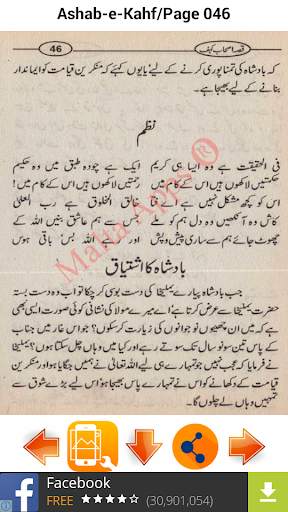 Ashab-e-Kahf/Page 046
46 قصہ اصحاب کہف
کہ بادشاہ کی تمنا پوری کرنے کے لیئے یا یوں کہئے کہ منکرین قیامت کو ایماندار
بنانے کے لیے بھیجا ہے۔
نظم
فی الحقیقت ہے وہ ایسا ہی کریم ایک ہے چودہ طبق میں وہ حکیم
حکمتیں لاکھوں ہیں اس کے کام میں رحمتیں لاکھوں ہیں اس کے نام میں
اس کو کچھ مشکل نہیں ہے خالق المخلوق ہے رب العلیٰ
کاش وہ آنکھیں وہ دل ہم کو ملے جس سے ہم عاشق بنیں اللہ کے
چھوٹ جائے ہم سے ساری پیش و پس اور رہے اللہ بس باقی ہوس
Malta Apps®
بادشاہ کا اشتیاق
جب بادشاہ پیارے یملیخا کی دست بوسی کر چکا تو اب وہ دست بستہ
حضرت یملیخا سے عرض کرتا ہے اے میرے مولا کی نشانی کوئی صورت ایسی بھی
ہے کہ میں ان چھیوں نوجوانوں کی زیارت کر سکوں؟ جو اس غار میں جناب
کے پاس تین سو نو سال تک سوتے رہے اور کیا میں وہاں چل سکتا ہوں؟ یملیخا
نے فرمایا کہ عجب نہیں جو تمہارے ہی لیے اللہ تعالیٰ نے ہمیں جگایا ہو اور منکرین
قیامت کے دکھانے کو اس نے تمہارے پاس بھیجا ہو اس لیے بڑے شوق سے
تمہیں وہاں لے چلوں گا۔
Facebook
FREE (30,901,054)